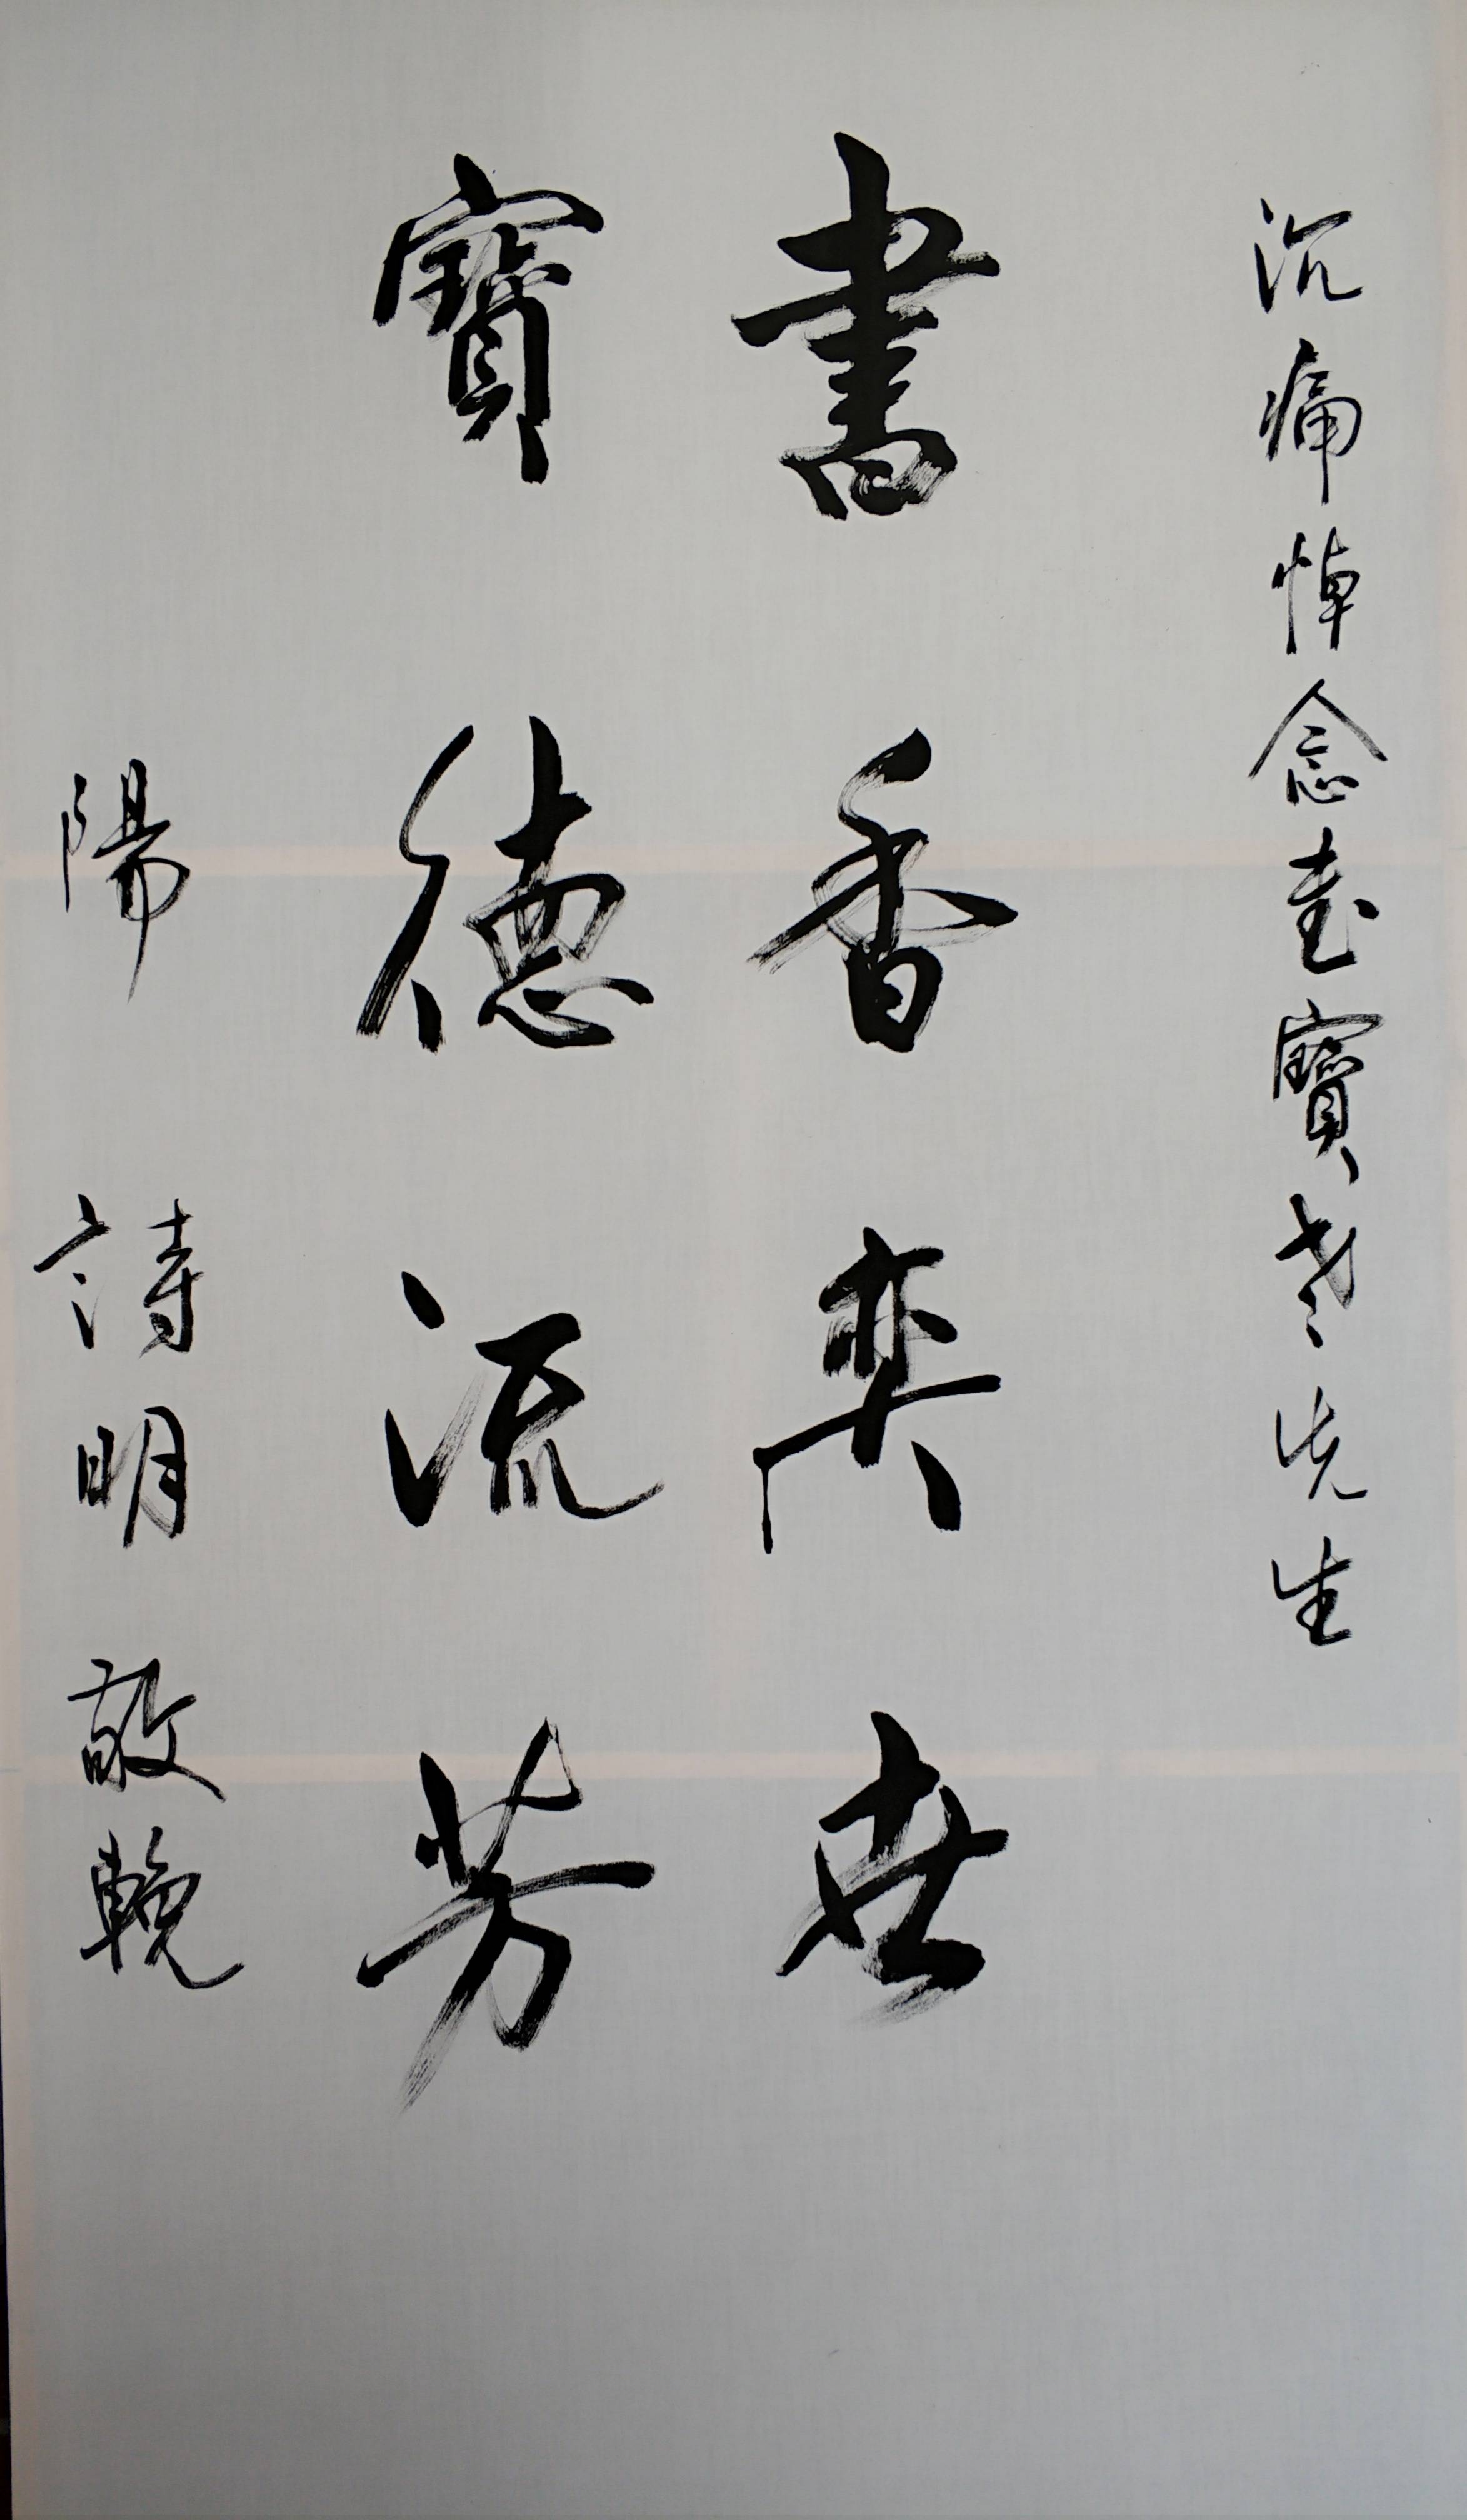 沉痛悼念書寶老先生
書香奕世
寶德流芳
陽 詩明 敬輓